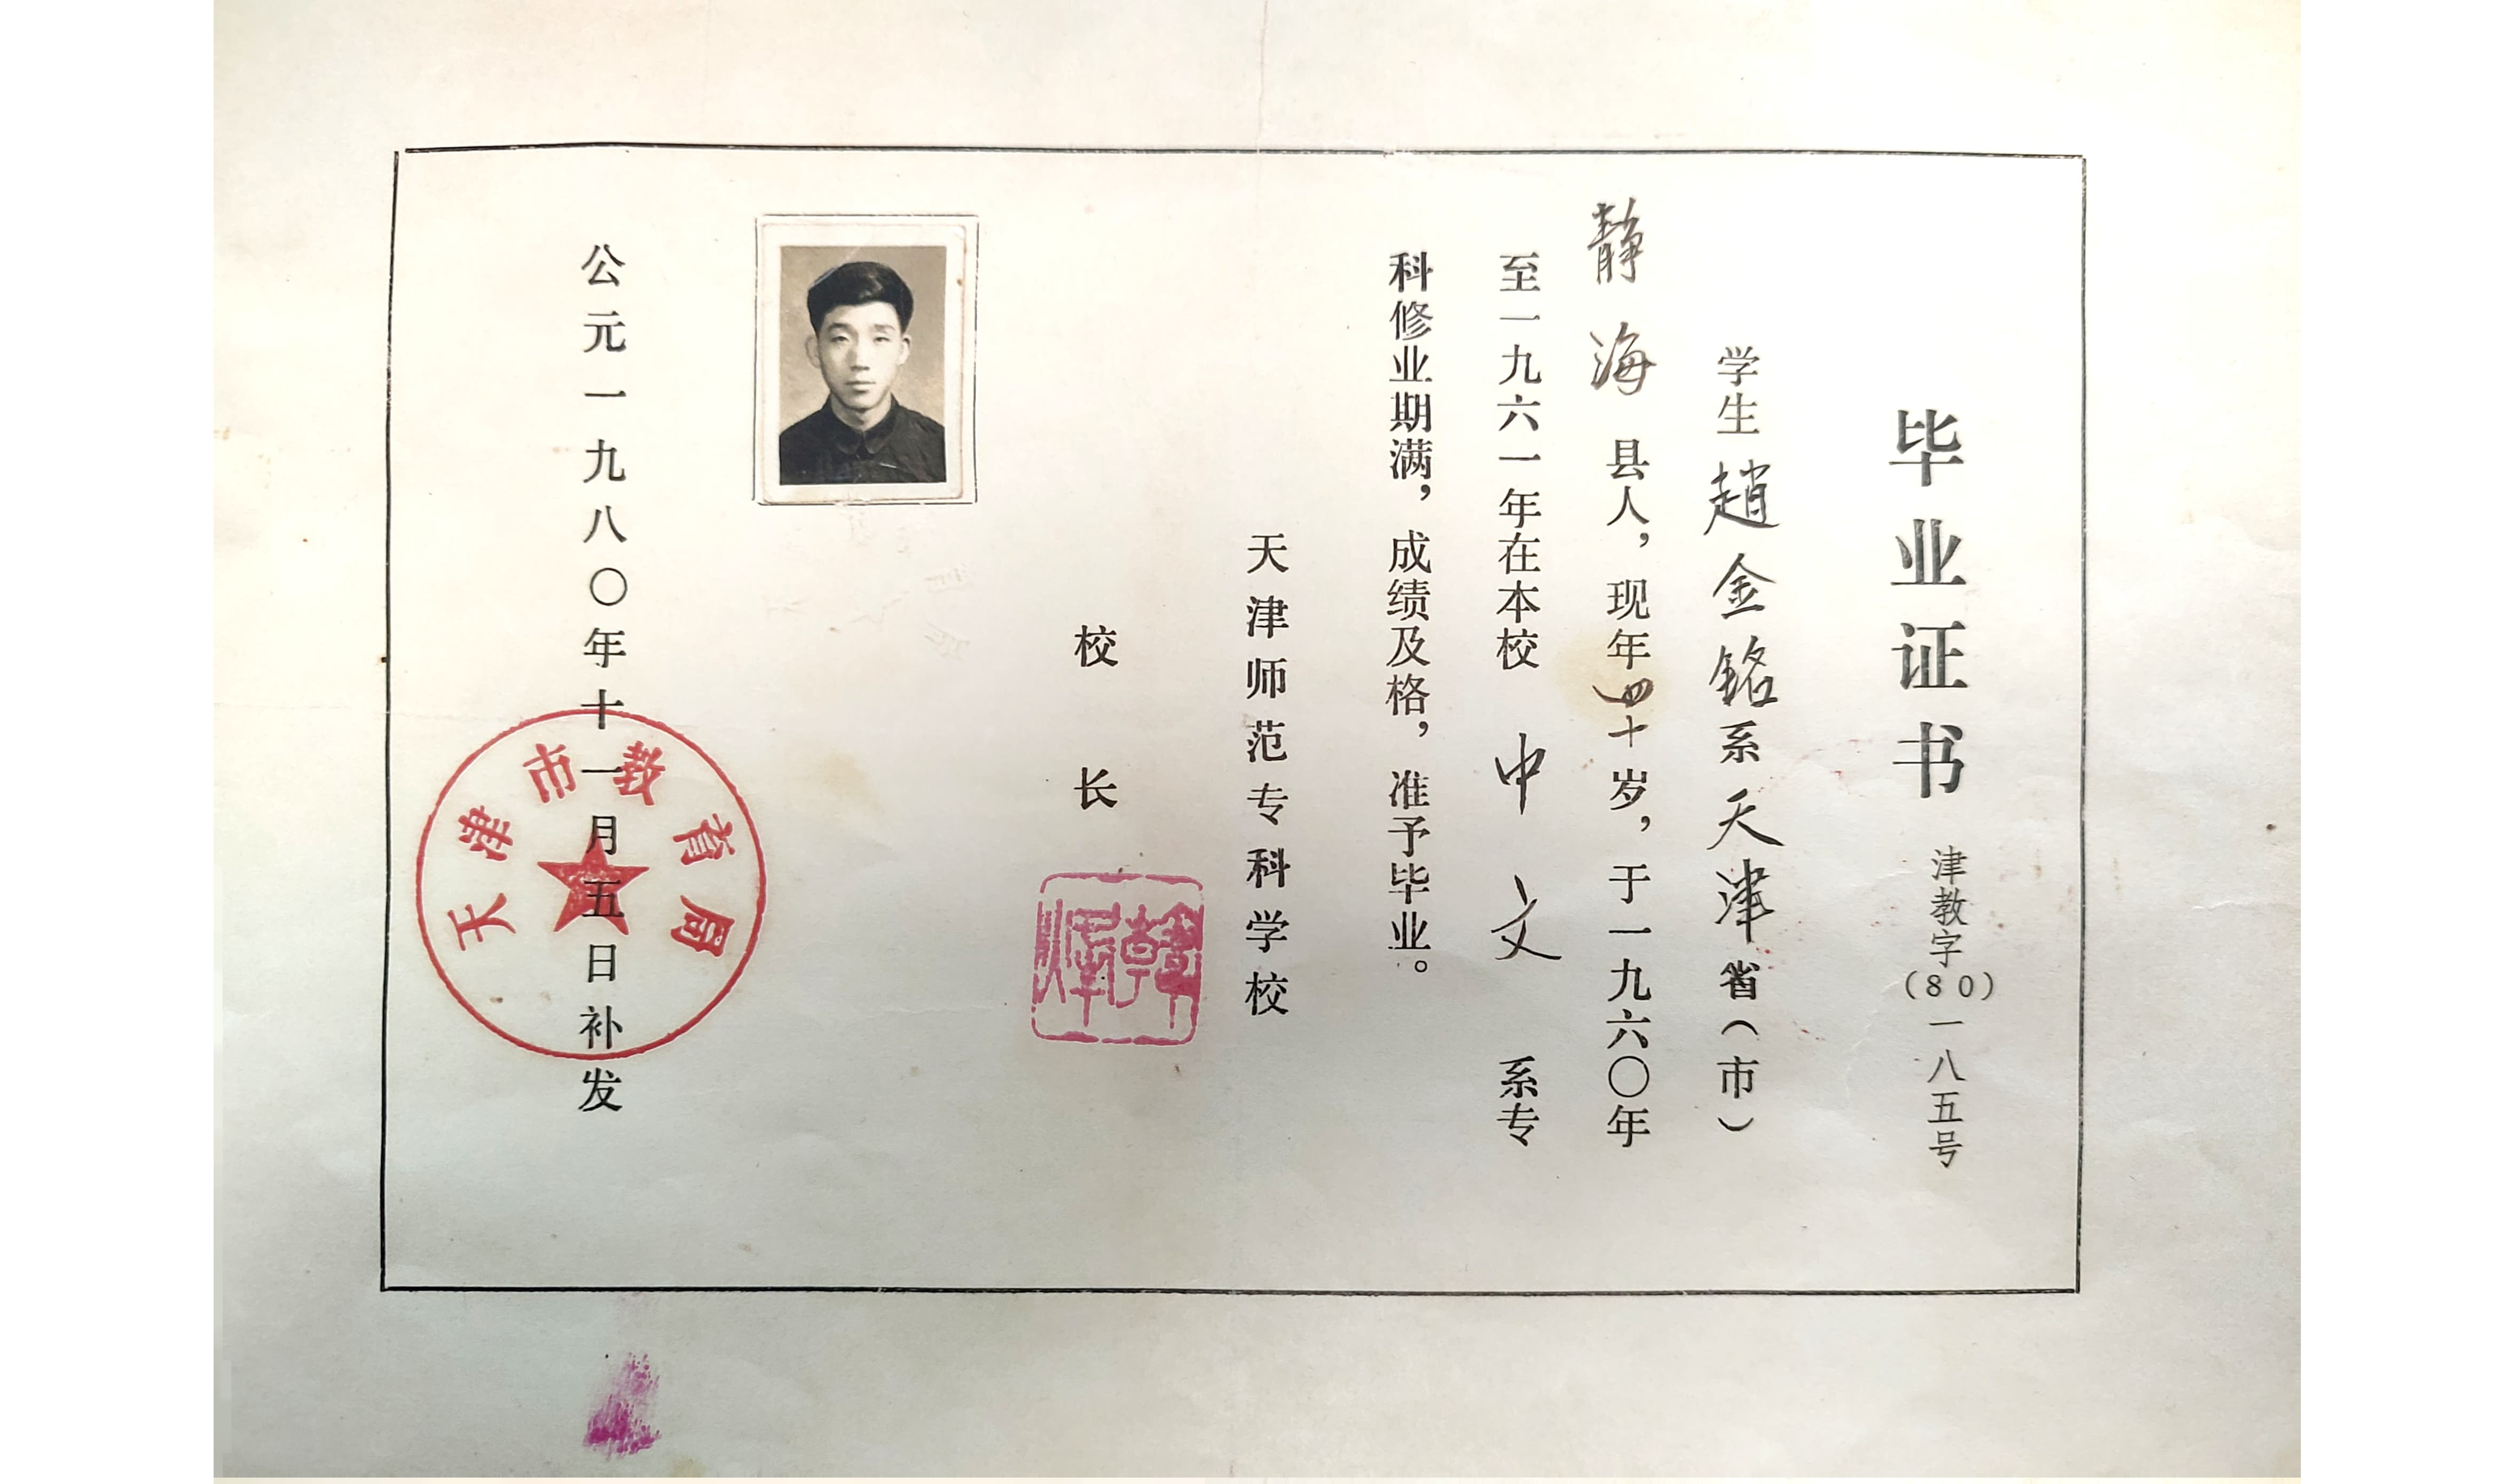 毕业证书
津教字(80)一八五号
学生趙金銘系天津省(市)
静海县人，现年四十岁，于一九六〇年
至一九六一年在本校中文系专
科修业期满，成绩及格，准予毕业。
天津师范专科学校
校长
公元一九八〇年十一月五日补发
天津市教育局